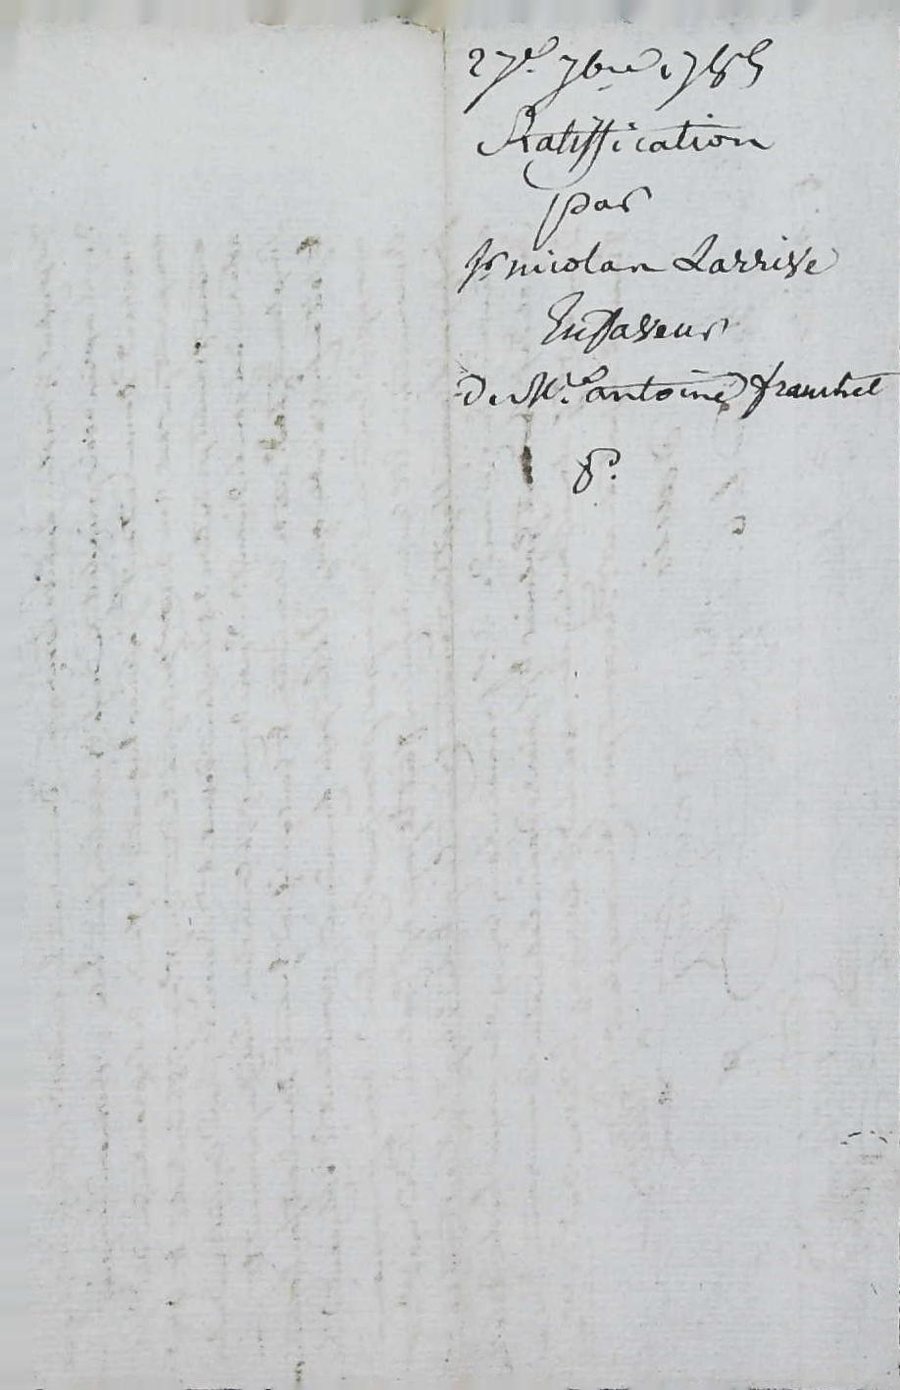 27e. 7bre 1785
Ratiffication
par
Sr nicolan Larrive
En faveur
De Mre. antoine franchet
8.